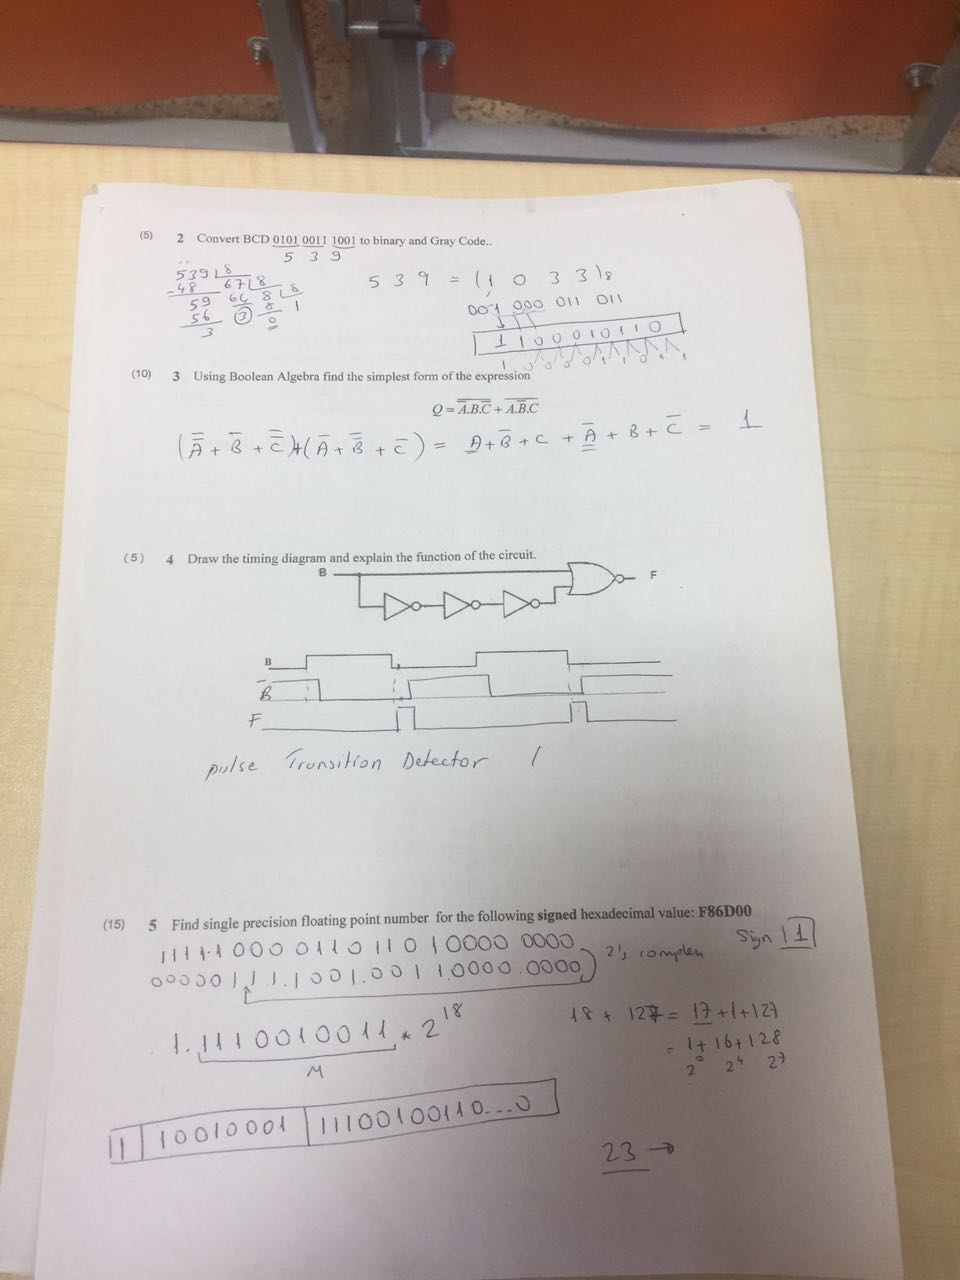 (5) 2 Convert BCD 0101 0011 1001 to binary and Gray Code..
5 3 9
539 8
-48 67 8
59 64 8 8
56 3 8 1
3 0
5 3 9 = (1 0 3 3)8
001 000 011 011
1 1 0 0 0 1 0 1 1 0
1 0 0 0 0 1 1 0 1 1
(10) 3 Using Boolean Algebra find the simplest form of the expression
Q = A̅.B.C̅ + A.B̅.C
(A̿ + B̅ + C̿)+(A̅ + B̿ + C̅) = A+B̅+C + A̅ + B + C̅ = 1
(5) 4 Draw the timing diagram and explain the function of the circuit.
B F
B
B̅
F
pulse Transition Detector
(15) 5 Find single precision floating point number for the following signed hexadecimal value: F86D00
1111.1000 0110 1101 0000 0000 Sign 1
0000011 1.1001.0011.0000.0000 2's complem
1.1110010011 * 2^18
M
18 + 127 = 17+1+127
= 1+16+128
2^0 2^4 2^7
1 10010001 11100100110...0
23 →